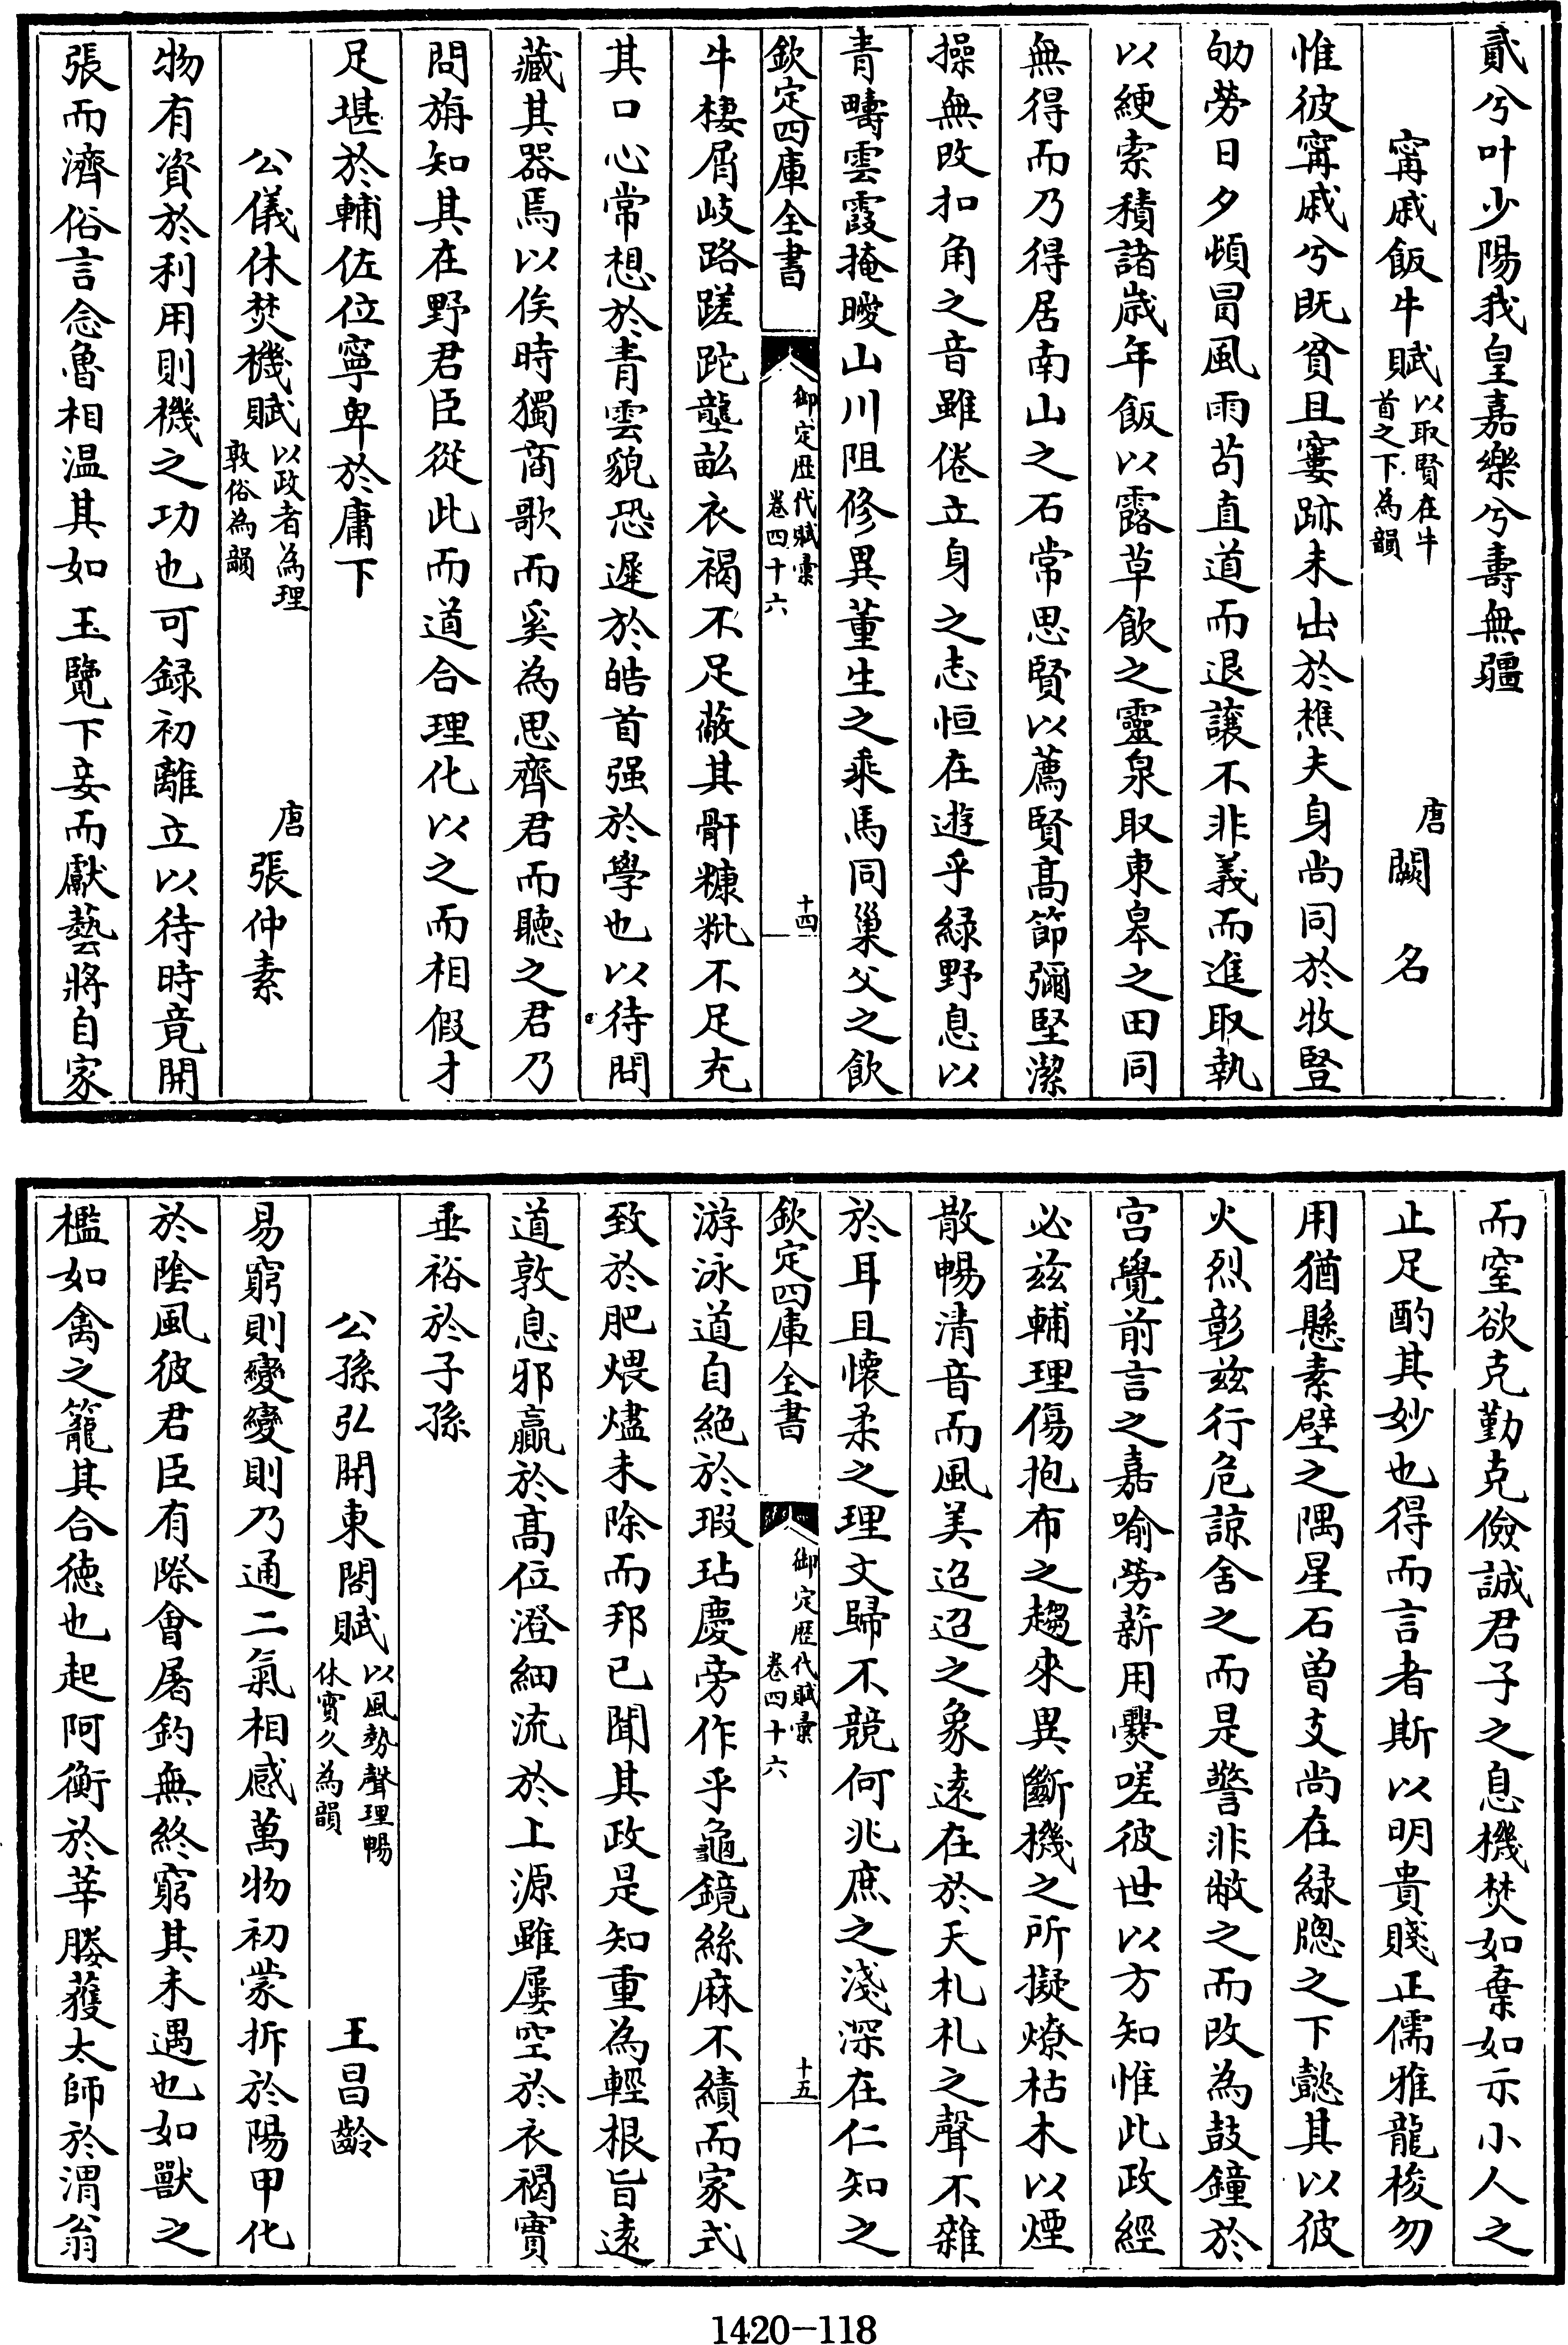 貳兮叶少陽我皇嘉樂兮壽無疆
甯戚飯牛賦以取賢在牛首之下為韻 唐闕名
惟彼甯戚兮既貧且窶跡未出於樵夫身尚同於牧豎
劬勞日夕頻冒風雨茍直道而退讓不非義而進取執
以綆索積諸歲年飯以露草飲之靈泉取東皋之田同
無得而乃得居南山之石常思賢以薦賢高節彌堅潔
操無改扣角之音雖倦立身之志恒在遊乎綠野息以
青疇雲霞掩曖山川阻修異董生之乘馬同巢父之飲
欽定四庫全書 御定歷代賦彙卷四十六 十四
牛棲屑岐路蹉跎壟畝衣褐不足蔽其骭糠粃不足充
其口心常想於青雲貌恐遲於皓首强於學也以待問
藏其器焉以俟時獨商歌而奚為思齊君而聽之君乃
問旃知其在野君臣從此而道合理化以之而相假才
足堪於輔佐位寧卑於庸下
公儀休焚機賦以政者為理敦俗為韻 唐張仲素
物有資於利用則機之功也可録初離立以待時竟開
張而濟俗言念魯相温其如玉覽下妾而獻藝將自家
而窒欲克勤克儉誠君子之息機焚如棄如示小人之
止足酌其妙也得而言者斯以明貴賤正儒雅龍梭勿
用猶懸素壁之隅星石曾支尚在緑牕之下懿其以彼
火烈彰兹行危諒舍之而是警非敝之而改為鼓鐘於
宫覺前言之嘉喻勞薪用爨嗟彼世以方知惟此政經
必兹輔理傷抱布之趨來異斷機之所擬燎枯木以煙
散暢清音而風美迢迢之象遠在於天札札之聲不雜
於耳且懷柔之理文歸不競何兆庶之淺深在仁知之
欽定四庫全書 御定歷代賦彙卷四十六 十五
游泳道自絶於瑕玷慶旁作乎龜鏡絲麻不績而家式
致於肥煨燼未除而邦已聞其政是知重為輕根旨遠
道敦息邪贏於高位澄細流於上源雖屢空於衣褐實
垂裕於子孫
公孫弘開東閤賦以風勢聲理暢休實久為韻 王昌齡
易窮則變變則乃通二氣相感萬物初蒙拆於陽甲化
於陰風彼君臣有際會屠釣無終窮其未遇也如獸之
檻如禽之籠其合德也起阿衡於莘媵獲太師於渭翁
1420-118